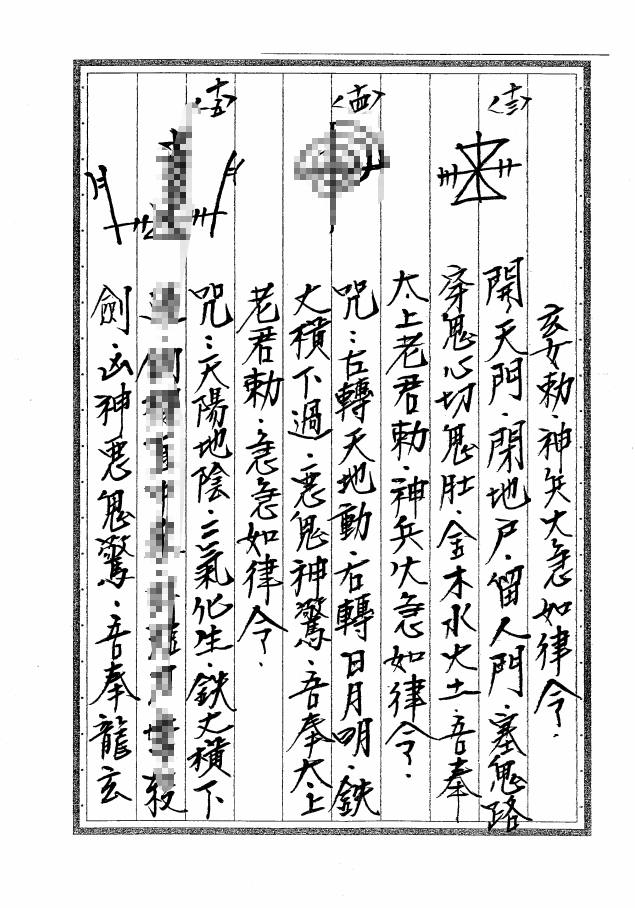 玄女勅.神兵火急如律令.
<十三>
開天門.閉地户.留人門.塞鬼路
穿鬼心切鬼肚.金木水火土.吾奉
太上老君勅.神兵火急如律令.
<十四>
咒:左轉天地動.右轉日月明.鉄
丈橫下過.惡鬼神驚.吾奉太上
老君勅.急急如律令.
<十五>
咒:天陽地陰.二氣化生.鉄丈橫下
殺
劍.凶神惡鬼驚.吾奉龍玄